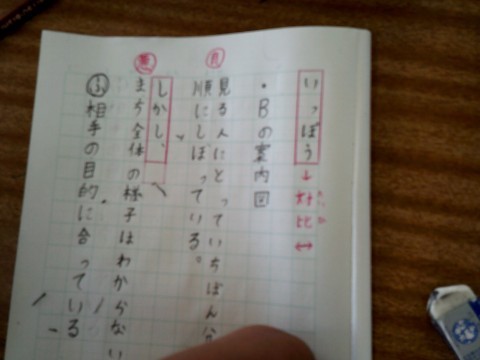 いっぽう→対比↔
たいひ
・Bの案内図
見る人にとっていちばん
順にしぼっている。
しかし、
まち全体の様子はわからない
相手の目的に合っている